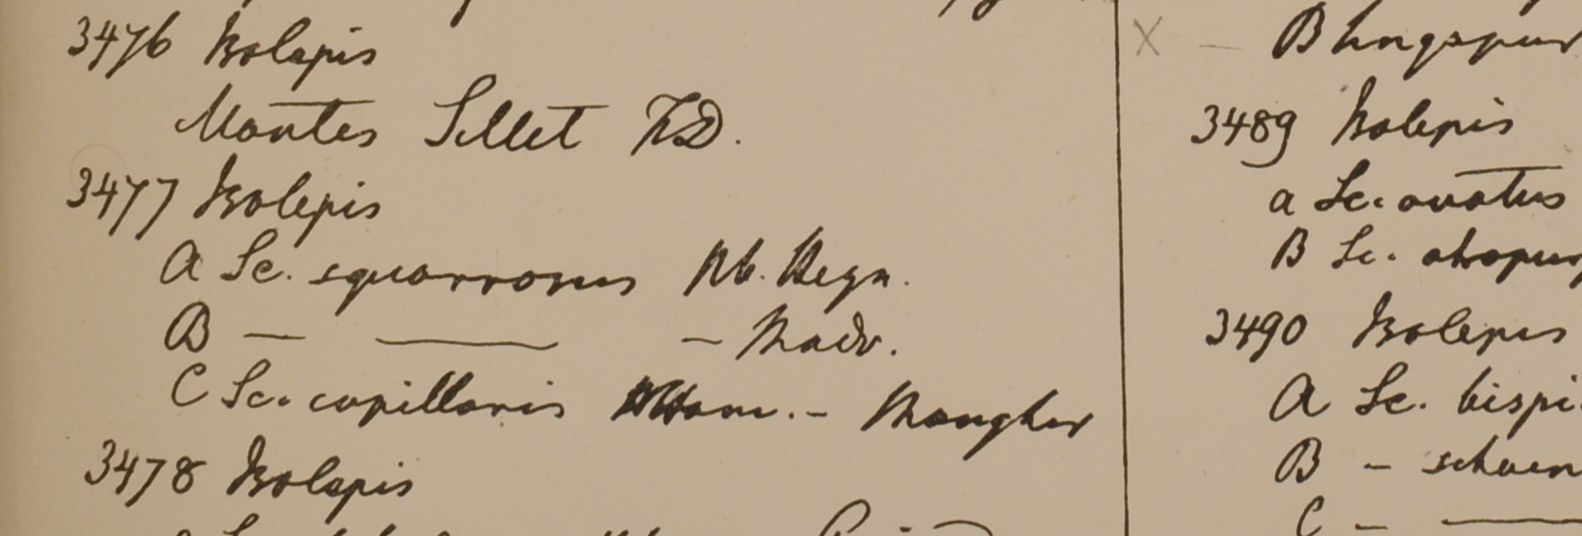 3476 Isolepis
Montes Sillet F.D.
3477 Isolepis
A Sc. squarrosus Hb. Heyn.
B — —— — Madr.
C Sc. capillaris Ham. - Monghir
3478 Isolepis
X — B
3489 Isolepis
a Sc. ovatus
B Sc. atropur
3490 Isolepis
A Sc. bispi
B - schoen
C - ——